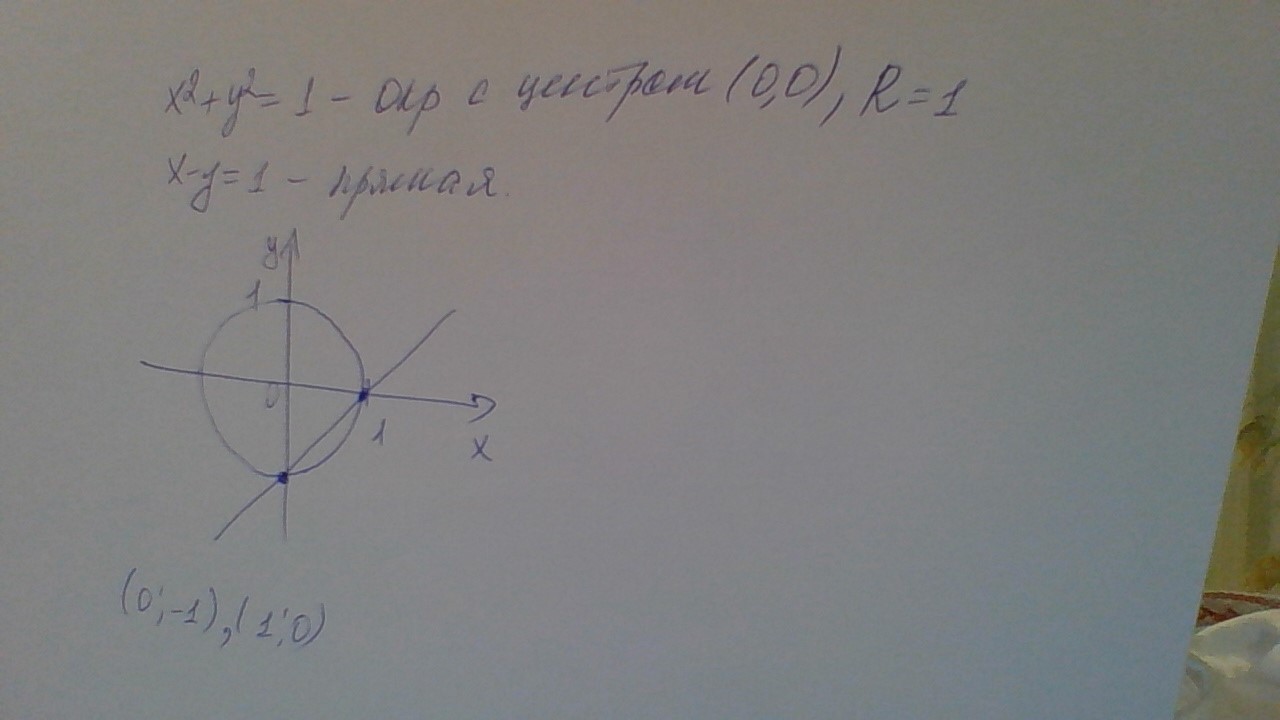 x²+y²=1 – окр с центром (0,0), R=1
x-y=1 – прямая.
y
1
0
1
x
(0;-1), (1;0)